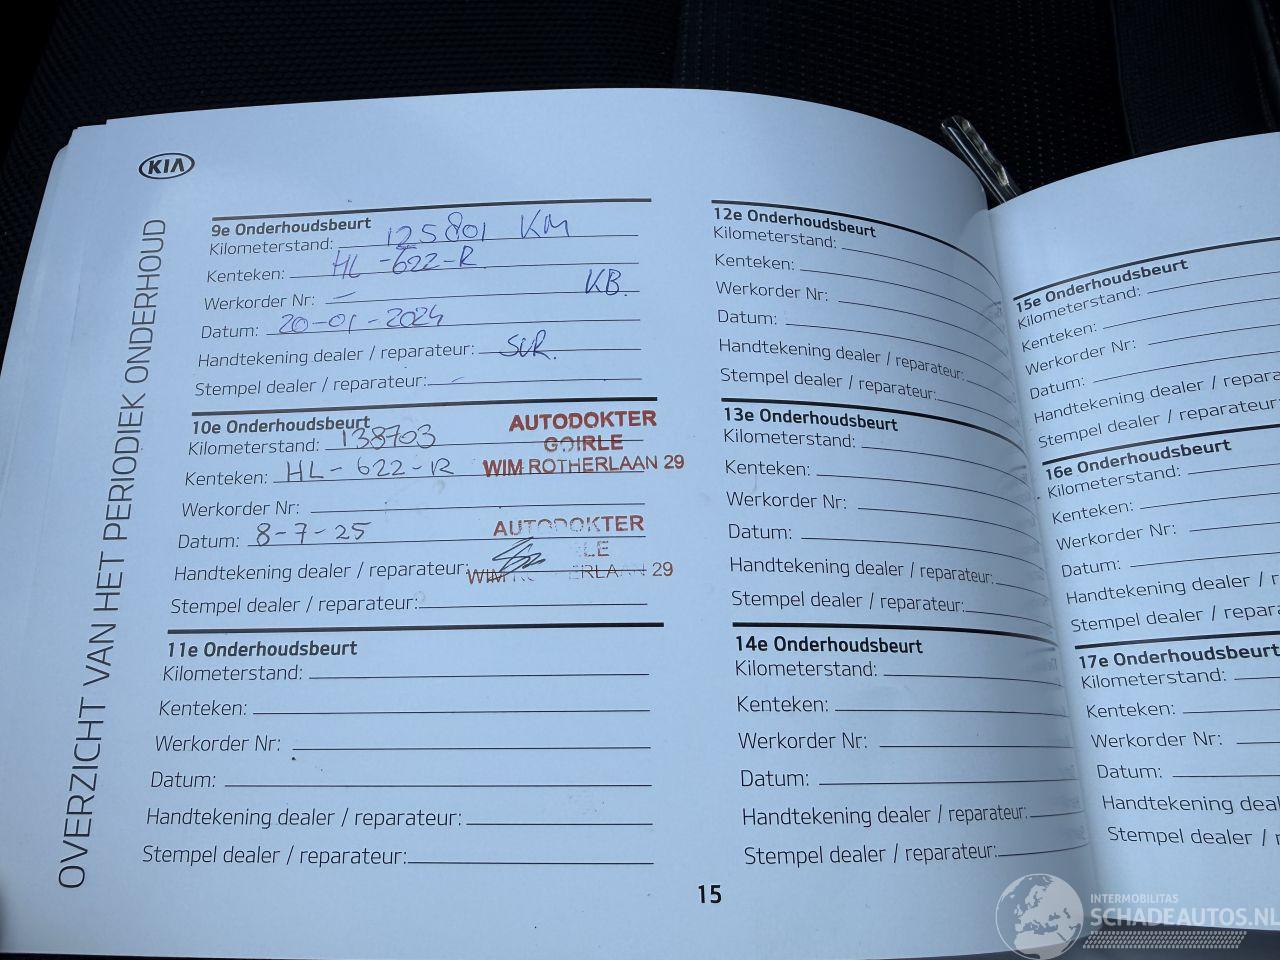 KIA
OVERZICHT VAN HET PERIODIEK ONDERHOUD
9e Onderhoudsbeurt
Kilometerstand: 125801 KM
Kenteken: HL-622-R
Werkorder Nr: — KB.
Datum: 20-01-2024
Handtekening dealer / reparateur: SUR.
Stempel dealer / reparateur:
10e Onderhoudsbeurt
Kilometerstand: 138703
Kenteken: HL-622-R
Werkorder Nr:
Datum: 8-7-25
Handtekening dealer / reparateur:
Stempel dealer / reparateur:
AUTODOKTER
GOIRLE
WIM ROTHERLAAN 29
AUTODOKTER
LE
WIM RO ERLAAN 29
11e Onderhoudsbeurt
Kilometerstand:
Kenteken:
Werkorder Nr:
Datum:
Handtekening dealer / reparateur:
Stempel dealer / reparateur:
12e Onderhoudsbeurt
Kilometerstand:
Kenteken:
Werkorder Nr:
Datum:
Handtekening dealer / reparateur:
Stempel dealer / reparateur:
13e Onderhoudsbeurt
Kilometerstand:
Kenteken:
Werkorder Nr:
Datum:
Handtekening dealer / reparateur:
Stempel dealer / reparateur:
14e Onderhoudsbeurt
Kilometerstand:
Kenteken:
Werkorder Nr:
Datum:
Handtekening dealer / reparateur:
Stempel dealer / reparateur:
15
15e Onderhoudsbeurt
Kilometerstand:
Kenteken:
Werkorder Nr:
Datum:
Handtekening dealer / repara
Stempel dealer / reparateur:
16e Onderhoudsbeurt
Kilometerstand:
Kenteken:
Werkorder Nr:
Datum:
Handtekening dealer / r
Stempel dealer / repara
17e Onderhoudsbeurt
Kilometerstand:
Kenteken:
Werkorder Nr:
Datum:
Handtekening deal
Stempel dealer / r
INTERMOBILITAS
SCHADEAUTOS.NL